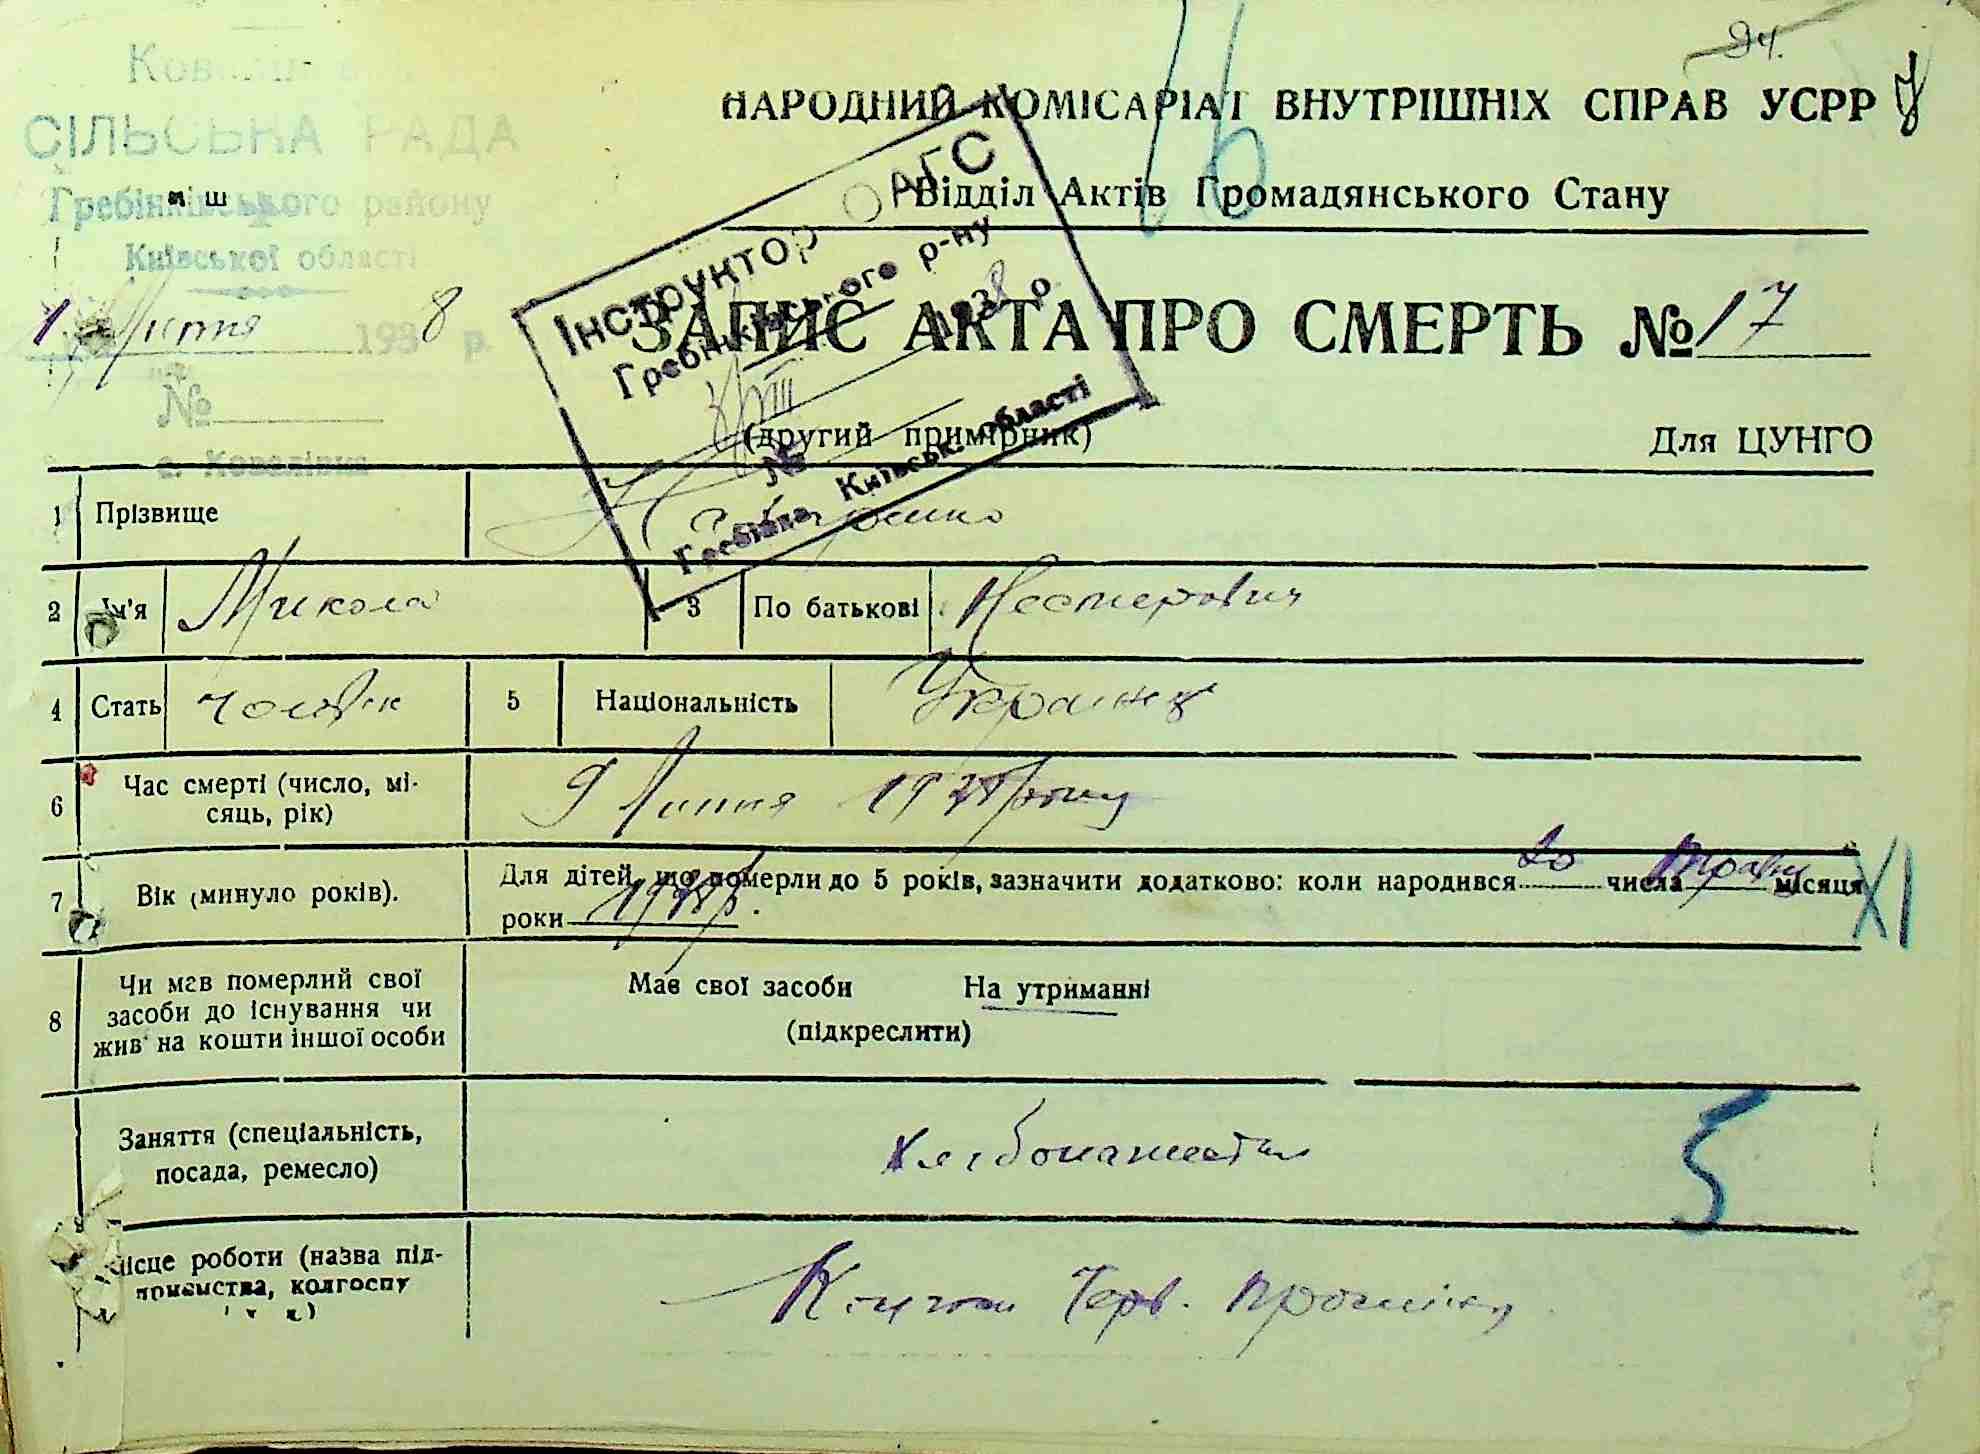 94.
СІЛЬСЬКА РАДА
Гребінківського району
Київської області
1 Липня 1938 р.
№
с. Ковалівка
НАРОДНИЙ КОМІСАРІАТ ВНУТРІШНІХ СПРАВ УСРР
Відділ Актів Громадянського Стану
ЗАПИС АКТА ПРО СМЕРТЬ № 17
(другий примірник)
Для ЦУНГО
Інструктор ОАГС
Гребінківського р-ну
1938 р.
№
Гребінка, Київськ. області
1 Прізвище
2 Ім'я Микола 3 По батькові Несторович
4 Стать чоловік 5 Національність Українець
6 Час смерті (число, мі-
сяць, рік) 9 Липня 1938 року
7 Вік (минуло років). Для дітей, що померли до 5 років, зазначити додатково: коли народився 20 числа травня місяця
роки 1938р.
XI
8 Чи мав померлий свої
засоби до існування чи
жив на кошти іншої особи
Має свої засоби На утриманні
(підкреслити)
Заняття (спеціальність,
посада, ремесло) Хлібопашество
5
Місце роботи (назва під-
приємства, колгоспу
і т. д.) Колгосп Черв. Промінь